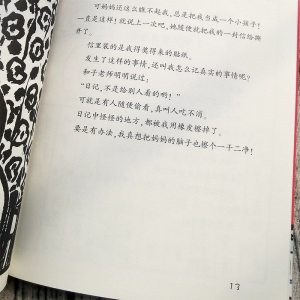 可妈妈还这么瞧不起我,总是把我当成一个小孩子!
一直是这样!就说上一次吧,她随便就把我的一封信给撕
开了。
信里装的是我得奖得来的贴纸。
发生了这样的事情,还叫我怎么记真实的事情呢?
和子老师明明说过:
“日记,不是给别人看的哟!”
可就是有人随便偷看,真叫人吃不消。
日记中怪怪的地方,都被我用橡皮擦掉了。
要是有办法,我真想把妈妈的脑子也擦个一干二净!
13